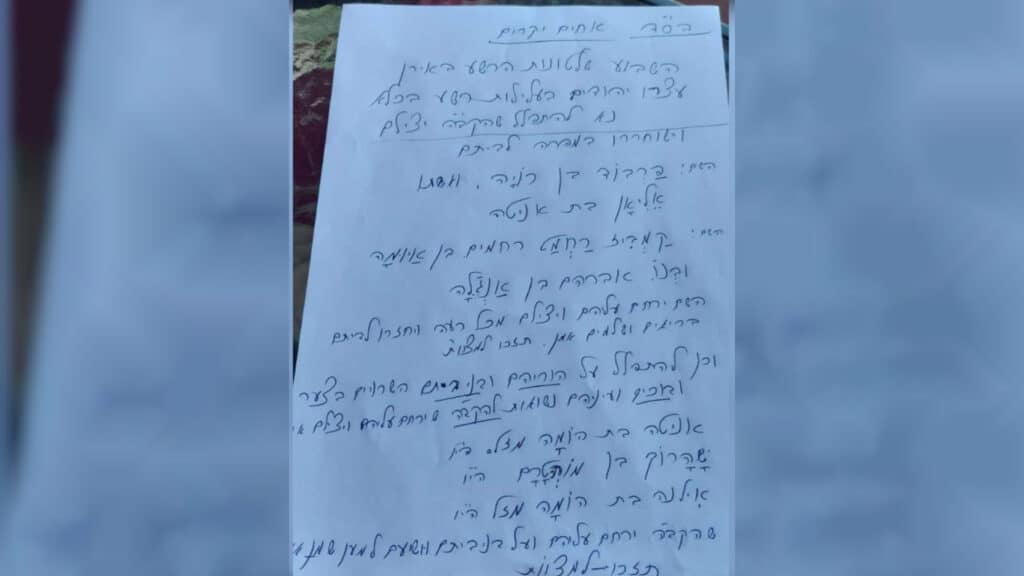 בס"ד אחים יקרים
השבוע שלטונות הרשע באירן
עצרו יהודים בעלילות רשע בכלא
נא להתפלל שהקב"ה יצילם
וישוחררו במהרה לביתם
השם: פַרְבּוֹד בן רוֹיָה, ואשתו
אֵלִיאָן בת אניטה
השם: קַמְבִּיז רַחְמַט רחמים בן
ובְּנוֹ אברהם בן אַנְגֵלָה
השם ירחם עליהם ויצילם מכל רעה ויחזרו לביתם
בריאים ושלמים אמן. תזכו למצוות
וכן להתפלל על הוריהם ובני ביתם השרוים בצער
ובוכים ועיניהם נשואות להקב"ה שירחם עליהם ויצילם
אניטה בת הוֹמָה מזל הי"ו
שָׁהרוֹךְ בן הי"ו
אילנה בת הוֹמָה מזל הי"ו
שהקב"ה ירחם עליהם ועל בני ביתם ויושיעם למען שמו
תזכו-למצוות